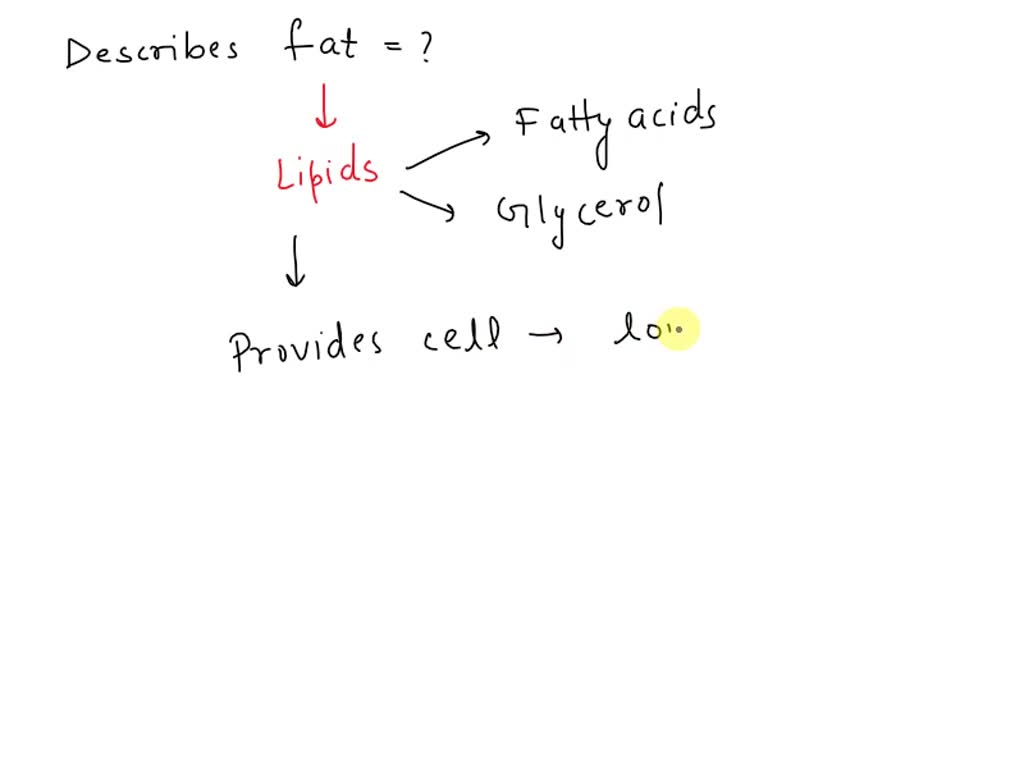 Describes fat = ?
↓
Lipids → Fatty acids
→ Glycerol
↓
Provides cell →